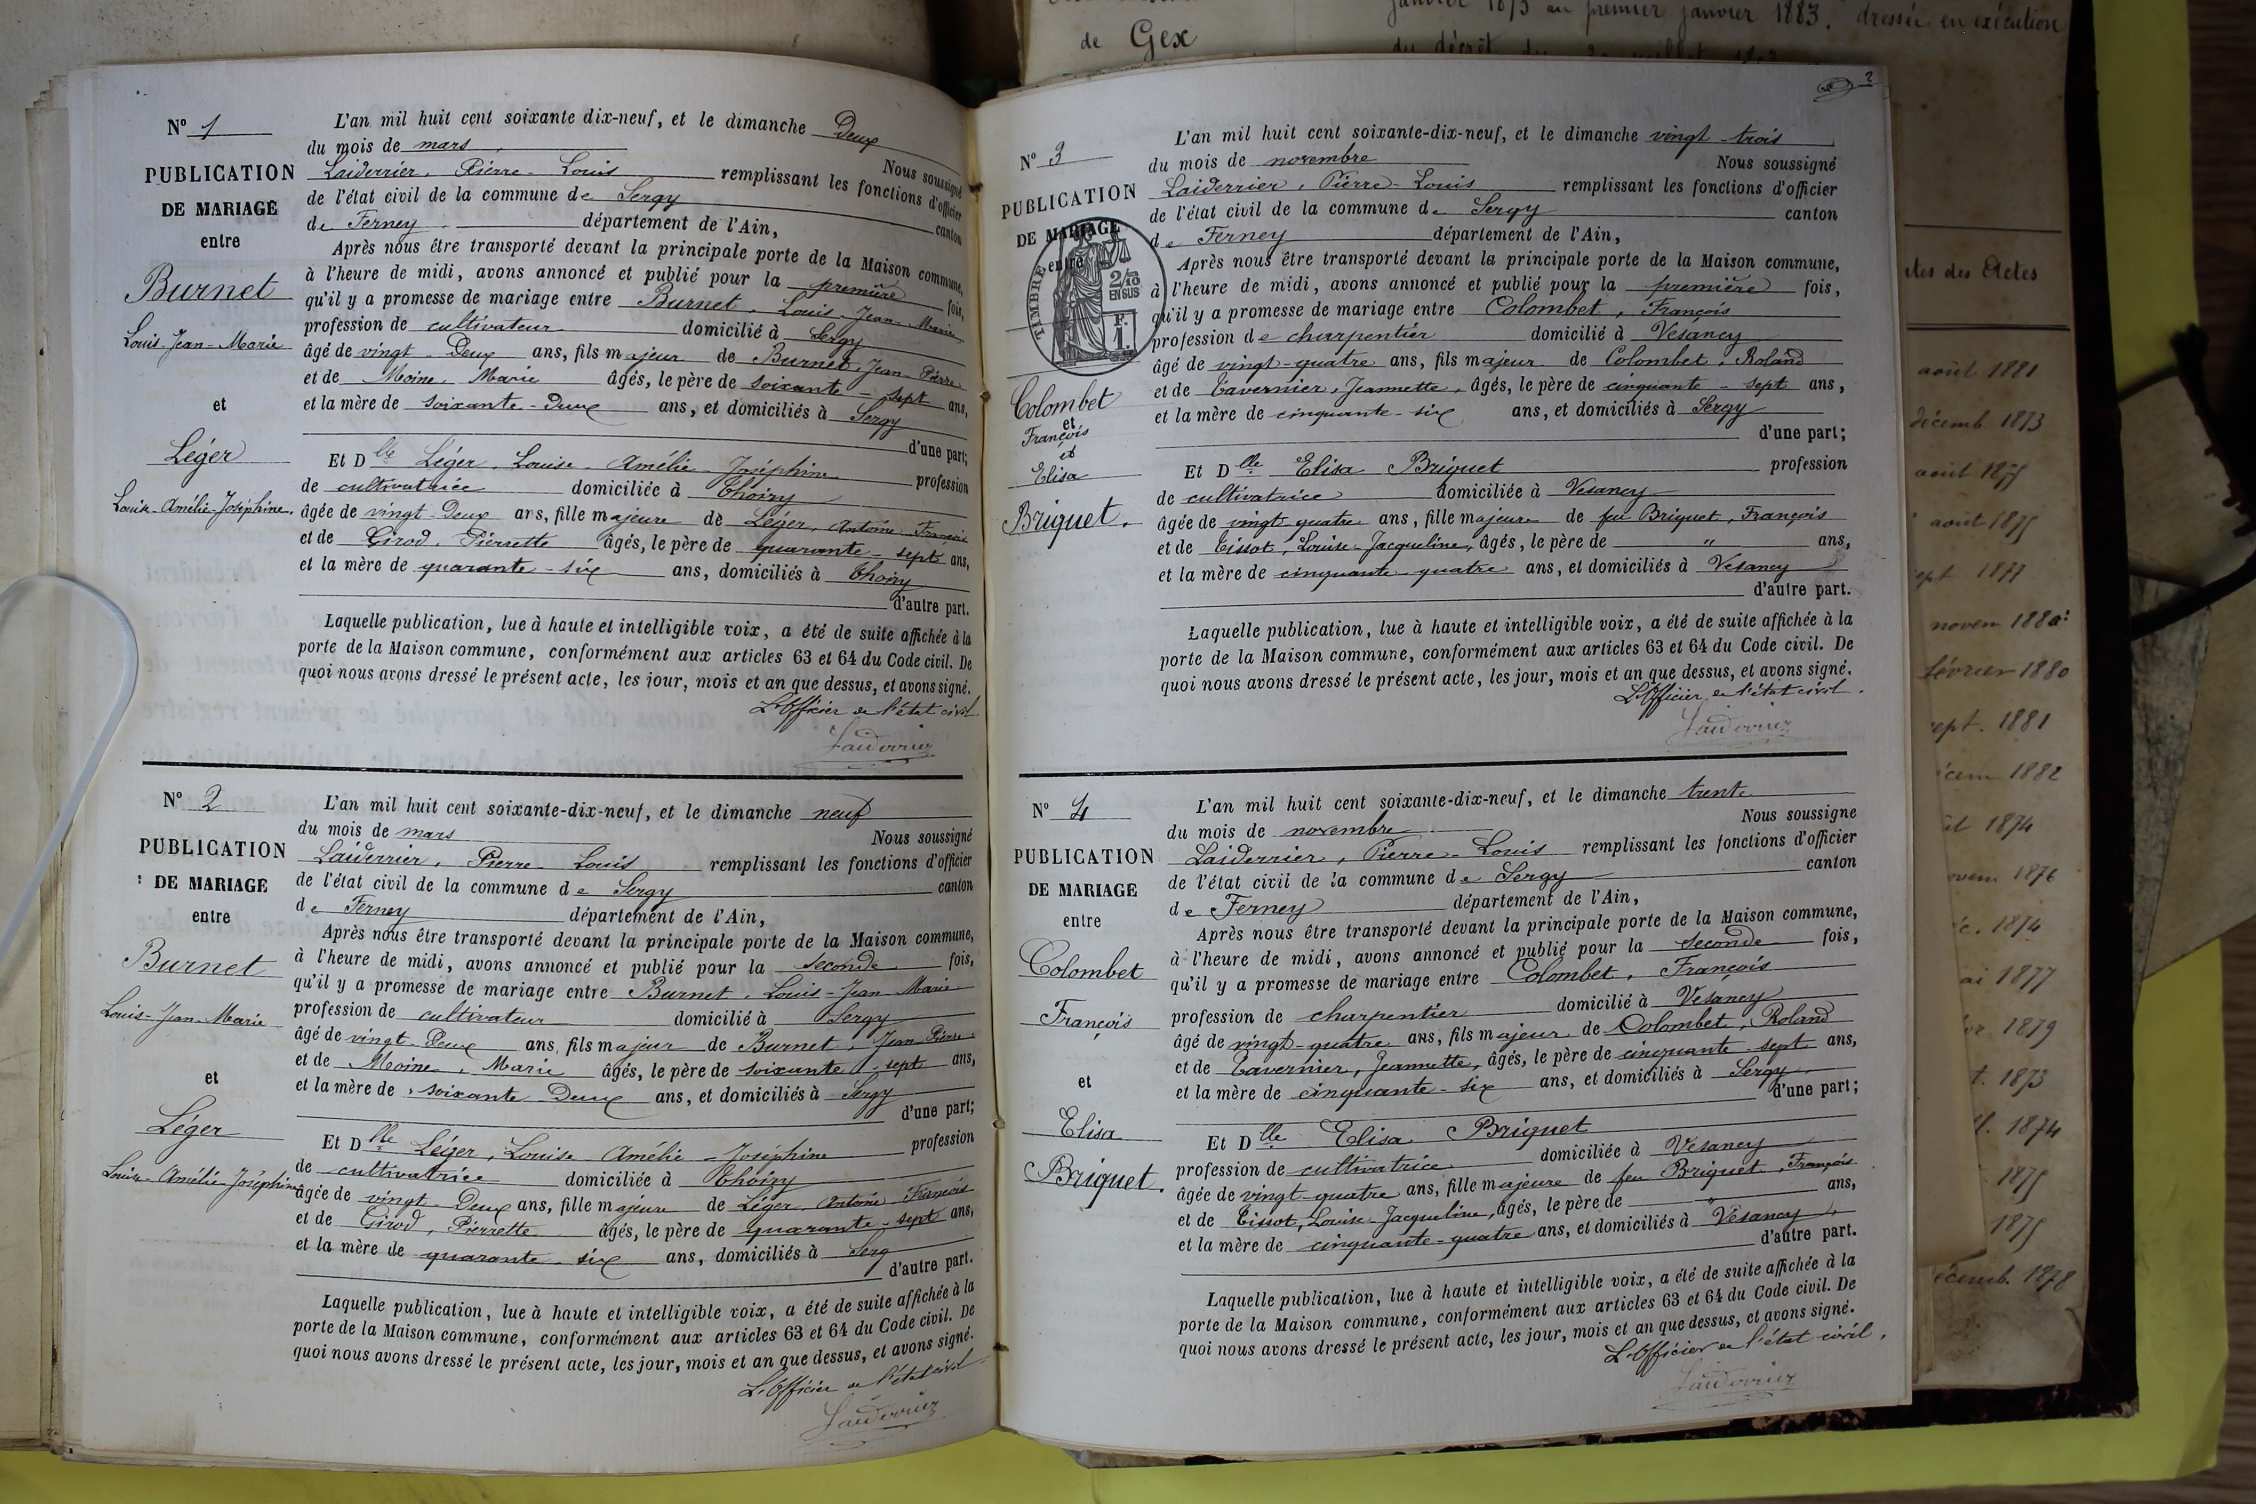 N° 1
PUBLICATION
DE MARIAGE
entre
Burnet
Louis-Jean-Marie
et
Léger
Louise-Amélie-Joséphine.
L'an mil huit cent soixante dix-neuf, et le dimanche Deux
du mois de mars Nous soussigné
Laiderrier, Pierre-Louis remplissant les fonctions d'officier
de l'état civil de la commune de Sergy canton
de Ferney département de l'Ain,
Après nous être transporté devant la principale porte de la Maison commune,
à l'heure de midi, avons annoncé et publié pour la première fois,
qu'il y a promesse de mariage entre Burnet, Louis-Jean-Marie
profession de cultivateur domicilié à Sergy
âgé de vingt-Deux ans, fils majeur de Burnet, Jean-Pierre
et de Moine, Marie âgés, le père de soixante-sept ans,
et la mère de soixante-Deux ans, et domiciliés à Sergy
d'une part;
Et Dlle Léger, Louise-Amélie-Joséphine profession
de cultivatrice domiciliée à Thoiry
âgée de vingt-Deux ans, fille majeure de Léger, Antoine-François
et de Girod, Pierrette âgés, le père de quarante-sept ans,
et la mère de quarante-six ans, domiciliés à Thoiry
d'autre part.
Laquelle publication, lue à haute et intelligible voix, a été de suite affichée à la
porte de la Maison commune, conformément aux articles 63 et 64 du Code civil. De
quoi nous avons dressé le présent acte, les jour, mois et an que dessus, et avons signé.
L'Officier de l'état civil
Laiderrier
N° 2
PUBLICATION
DE MARIAGE
entre
Burnet
Louis-Jean-Marie
et
Léger
Louise-Amélie-Joséphine
L'an mil huit cent soixante-dix-neuf, et le dimanche neuf
du mois de mars Nous soussigné
Laiderrier, Pierre-Louis remplissant les fonctions d'officier
de l'état civil de la commune de Sergy canton
de Ferney département de l'Ain,
Après nous être transporté devant la principale porte de la Maison commune,
à l'heure de midi, avons annoncé et publié pour la seconde fois,
qu'il y a promesse de mariage entre Burnet, Louis-Jean-Marie
profession de cultivateur domicilié à Sergy
âgé de vingt-Deux ans, fils majeur de Burnet, Jean-Pierre
et de Moine, Marie âgés, le père de soixante-sept ans,
et la mère de soixante-Deux ans, et domiciliés à Sergy
d'une part;
Et Dlle Léger, Louise Amélie-Joséphine profession
de cultivatrice domiciliée à Thoiry
âgée de vingt-Deux ans, fille majeure de Léger, Antoine François
et de Girod, Pierrette âgés, le père de quarante-sept ans,
et la mère de quarante-six ans, domiciliés à Serg
d'autre part.
Laquelle publication, lue à haute et intelligible voix, a été de suite affichée à la
porte de la Maison commune, conformément aux articles 63 et 64 du Code civil. De
quoi nous avons dressé le présent acte, les jour, mois et an que dessus, et avons signé.
L'Officier de l'état civil
Laiderrier
2
N° 3
PUBLICATION
DE MARIAGE
entre
TIMBRE
2/10
EN SUS
F.
1.
Colombet
et
François
et
Elisa
Briquet.
L'an mil huit cent soixante-dix-neuf, et le dimanche vingt-trois
du mois de novembre Nous soussigné
Laiderrier, Pierre-Louis remplissant les fonctions d'officier
de l'état civil de la commune de Sergy canton
de Ferney département de l'Ain,
Après nous être transporté devant la principale porte de la Maison commune,
à l'heure de midi, avons annoncé et publié pour la première fois,
qu'il y a promesse de mariage entre Colombet, François
profession de charpentier domicilié à Vesancy
âgé de vingt-quatre ans, fils majeur de Colombet, Roland
et de Tavernier, Jeannette, âgés, le père de cinquante-sept ans,
et la mère de cinquante-six ans, et domiciliés à Sergy
d'une part;
Et Dlle Elisa Briquet profession
de cultivatrice domiciliée à Vesancy
âgée de vingt-quatre ans, fille majeure de feu Briquet, François
et de Tissot, Louise-Jacqueline, âgés, le père de " ans,
et la mère de cinquante-quatre ans, et domiciliés à Vesancy
d'autre part.
Laquelle publication, lue à haute et intelligible voix, a été de suite affichée à la
porte de la Maison commune, conformément aux articles 63 et 64 du Code civil. De
quoi nous avons dressé le présent acte, les jour, mois et an que dessus, et avons signé.
L'Officier de l'état civil.
Laiderrier
N° 4
PUBLICATION
DE MARIAGE
entre
Colombet
François
et
Elisa
Briquet.
L'an mil huit cent soixante-dix-neuf, et le dimanche trente
du mois de novembre Nous soussigné
Laiderrier, Pierre-Louis remplissant les fonctions d'officier
de l'état civil de la commune de Sergy canton
de Ferney département de l'Ain,
Après nous être transporté devant la principale porte de la Maison commune,
à l'heure de midi, avons annoncé et publié pour la seconde fois,
qu'il y a promesse de mariage entre Colombet, François
profession de charpentier domicilié à Vesancy
âgé de vingt-quatre ans, fils majeur de Colombet, Roland
et de Tavernier, Jeannette, âgés, le père de cinquante-sept ans,
et la mère de cinquante-six ans, et domiciliés à Sergy
d'une part;
Et Dlle Elisa Briquet
profession de cultivatrice domiciliée à Vesancy
âgée de vingt-quatre ans, fille majeure de feu Briquet, François
et de Tissot, Louise-Jacqueline, âgés, le père de " ans,
et la mère de cinquante-quatre ans, et domiciliés à Vesancy
d'autre part.
Laquelle publication, lue à haute et intelligible voix, a été de suite affichée à la
porte de la Maison commune, conformément aux articles 63 et 64 du Code civil. De
quoi nous avons dressé le présent acte, les jour, mois et an que dessus, et avons signé.
L'Officier de l'état civil.
Laiderrier
janvier 1873 au premier janvier 1883. dressée en exécution
de Gex
des Actes
août 1881
décemb. 1873
août 1875
août 1875
sept 1877
novem 1880
février 1880
sept. 1881
1882
1874
1876
1874
1877
1879
1873
1874
1875
1875
décemb. 1878